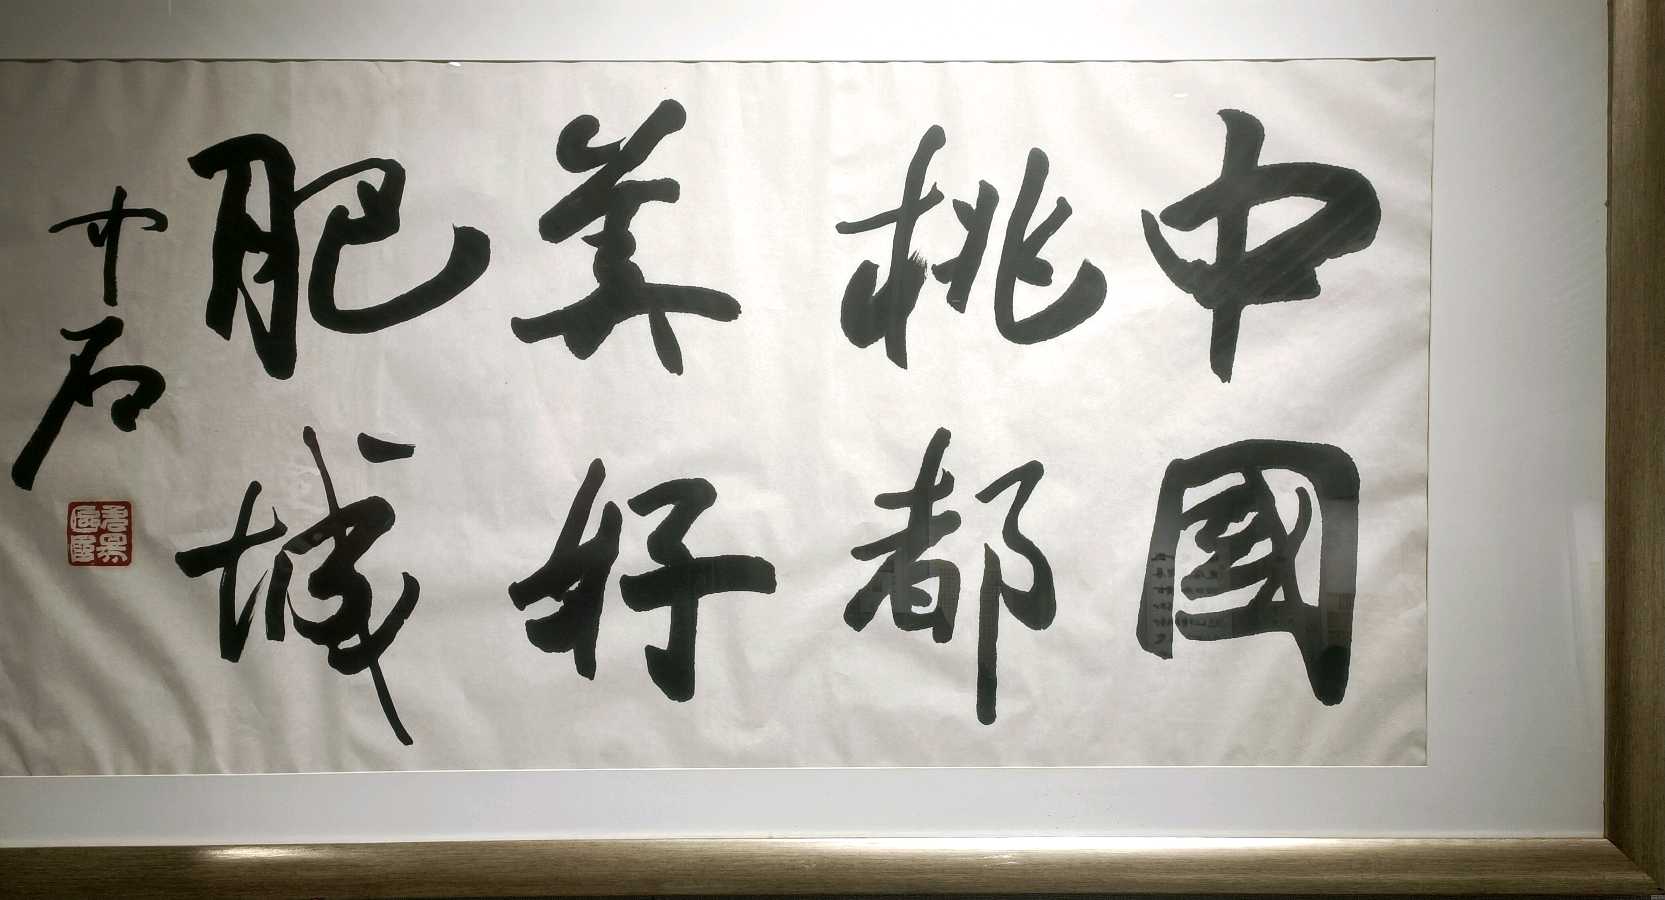 中國
桃都
美好
肥城
中石